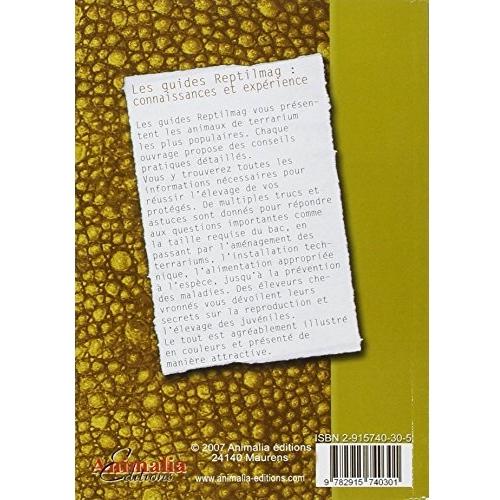 Les guides Reptilmag :
connaissances et expérience
Les guides Reptilmag vous présen-
tent les animaux de terrarium
les plus populaires. Chaque
ouvrage propose des conseils
pratiques détaillés.
Vous y trouverez toutes les
informations nécessaires pour
réussir l'élevage de vos
protégés. De multiples trucs et
astuces sont donnés pour répondre
aux questions importantes comme
la taille requise du bac, en
passant par l'aménagement des
terrariums, l'installation tech-
nique, l'alimentation appropriée
à l'espèce, jusqu'à la prévention
des maladies. Des éleveurs che-
vronnés vous dévoilent leurs
secrets sur la reproduction et
l'élevage des juvéniles.
Le tout est agréablement illustré
en couleurs et présenté de
manière attractive.
Animalia
Editions
© 2007 Animalia éditions
24140 Maurens
www.animalia-editions.com
ISBN 2-915740-30-5
9 782915 740301